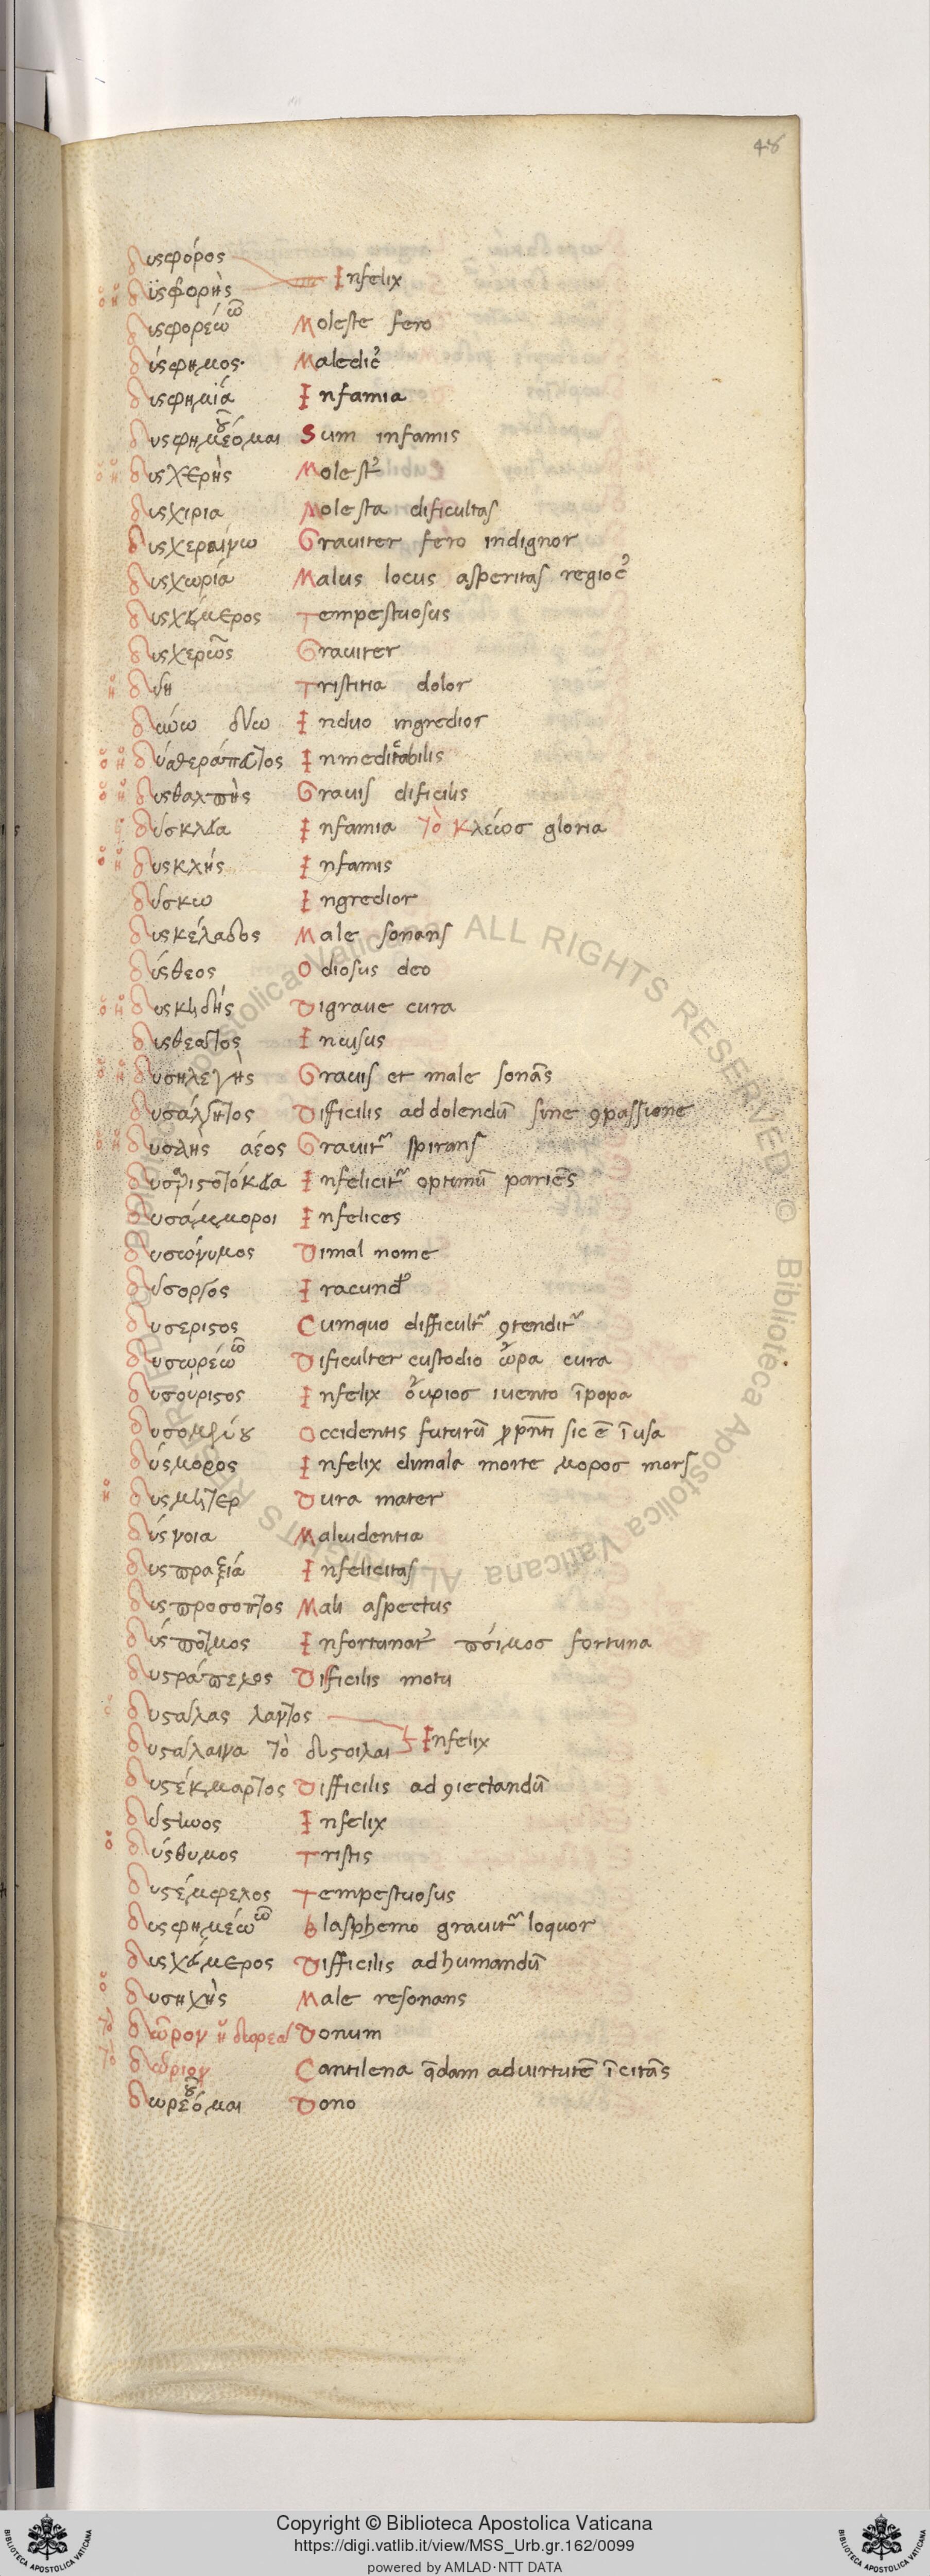 48
δυσφόρος
ὁ ἡ δϋσφορὴς Infelix
δυσφορέω ῶ Moleste fero
δύσφημος· Maledicꝰ
δυσφημία Infamia
δυσφημέομαι οῦ Sum infamis
ὁ ἡ δυσχερὴς Molestꝰ
δυσχιρια Molesta dificultas
δυσχεραίνω Grauiter fero indignor
δυσχωρία Malus locus asperitas regiocꝰ
δυσχείμερος Tempestuosus
δυσχερῶς Grauiter
ἡ δύη Tristitia dolor
δύω Induo ingredior
ὁ ἡ δυσθεράπευτος Inmeditabilis
ὁ ἡ δυσθαλπὴς Grauis dificilis
δύσκλεια Infamia τὸ κλέωσ gloria
ὁ ἡ δυσκλὴς Infamis
δύσκω Ingredior
δυσκέλαδος Male sonans
δύσθεος Odiosus deo
ὁ ἡ δυσκηδής Digraue cura
δυσθεατος Inuisus
ὁ ἡ δυσηλεγὴς Grauis et male sonās
δυσάλγητος Difficilis ad dolendū sine ꝯpassione
ὁ ἡ δυσαὴς αέος Grauitr̃ spirans
δυσαριστοτόκεια Infelicitr̃ optimū pariēs
δυσάμμοροι Infelices
δυσώνυμος Dimal nome
δύσοργος Iracundꝰ
δυσεριστος Cumquo difficultr̃ ꝯtenditr̃
δυσωρέω ῶ Dificulter custodio ὦρα cura
δυσούριστος Infelix οὖριοσ iuento īpopa
Occidentis futurū ꝓ pn̄ti sic ē ī usa
δύσμορος Infelix dimala morte μοροσ mors
ἡ δυσμῆτερ Dura mater
δύσνοια Maluidentia
δυσπραξία Infelicitas
δυσπροσοπτος Mali aspectus
δύσποτμος Infortunatꝰ πότμοσ fortuna
δυστράπελος Difficilis motu
ὁ δυστάλας λαντος
δυστάλαινα τὸ Infelix
δυστέκμαρτος Difficilis ad ꝯiectandū
δύστηνος Infelix
ὁ δύσθυμος Tristis
δυσπέμφελος Tempestuosus
δυσφημέω ῶ Blasphemo grauitr̃ loquor
δυσχείμερος Difficilis ad humandū
ὁ δυσηχὴς Male resonans
τὸ δῶρον ἢ δωρεὰ Donum
τὸ δώριον Cantilena q̄dam aduirtutē īcitās
δωρέομαι οῦ Dono
ALL RIGHTS RESERVED © Biblioteca Apostolica Vaticana
Copyright © Biblioteca Apostolica Vaticana
https://digi.vatlib.it/view/MSS_Urb.gr.162/0099
powered by AMLAD·NTT DATA